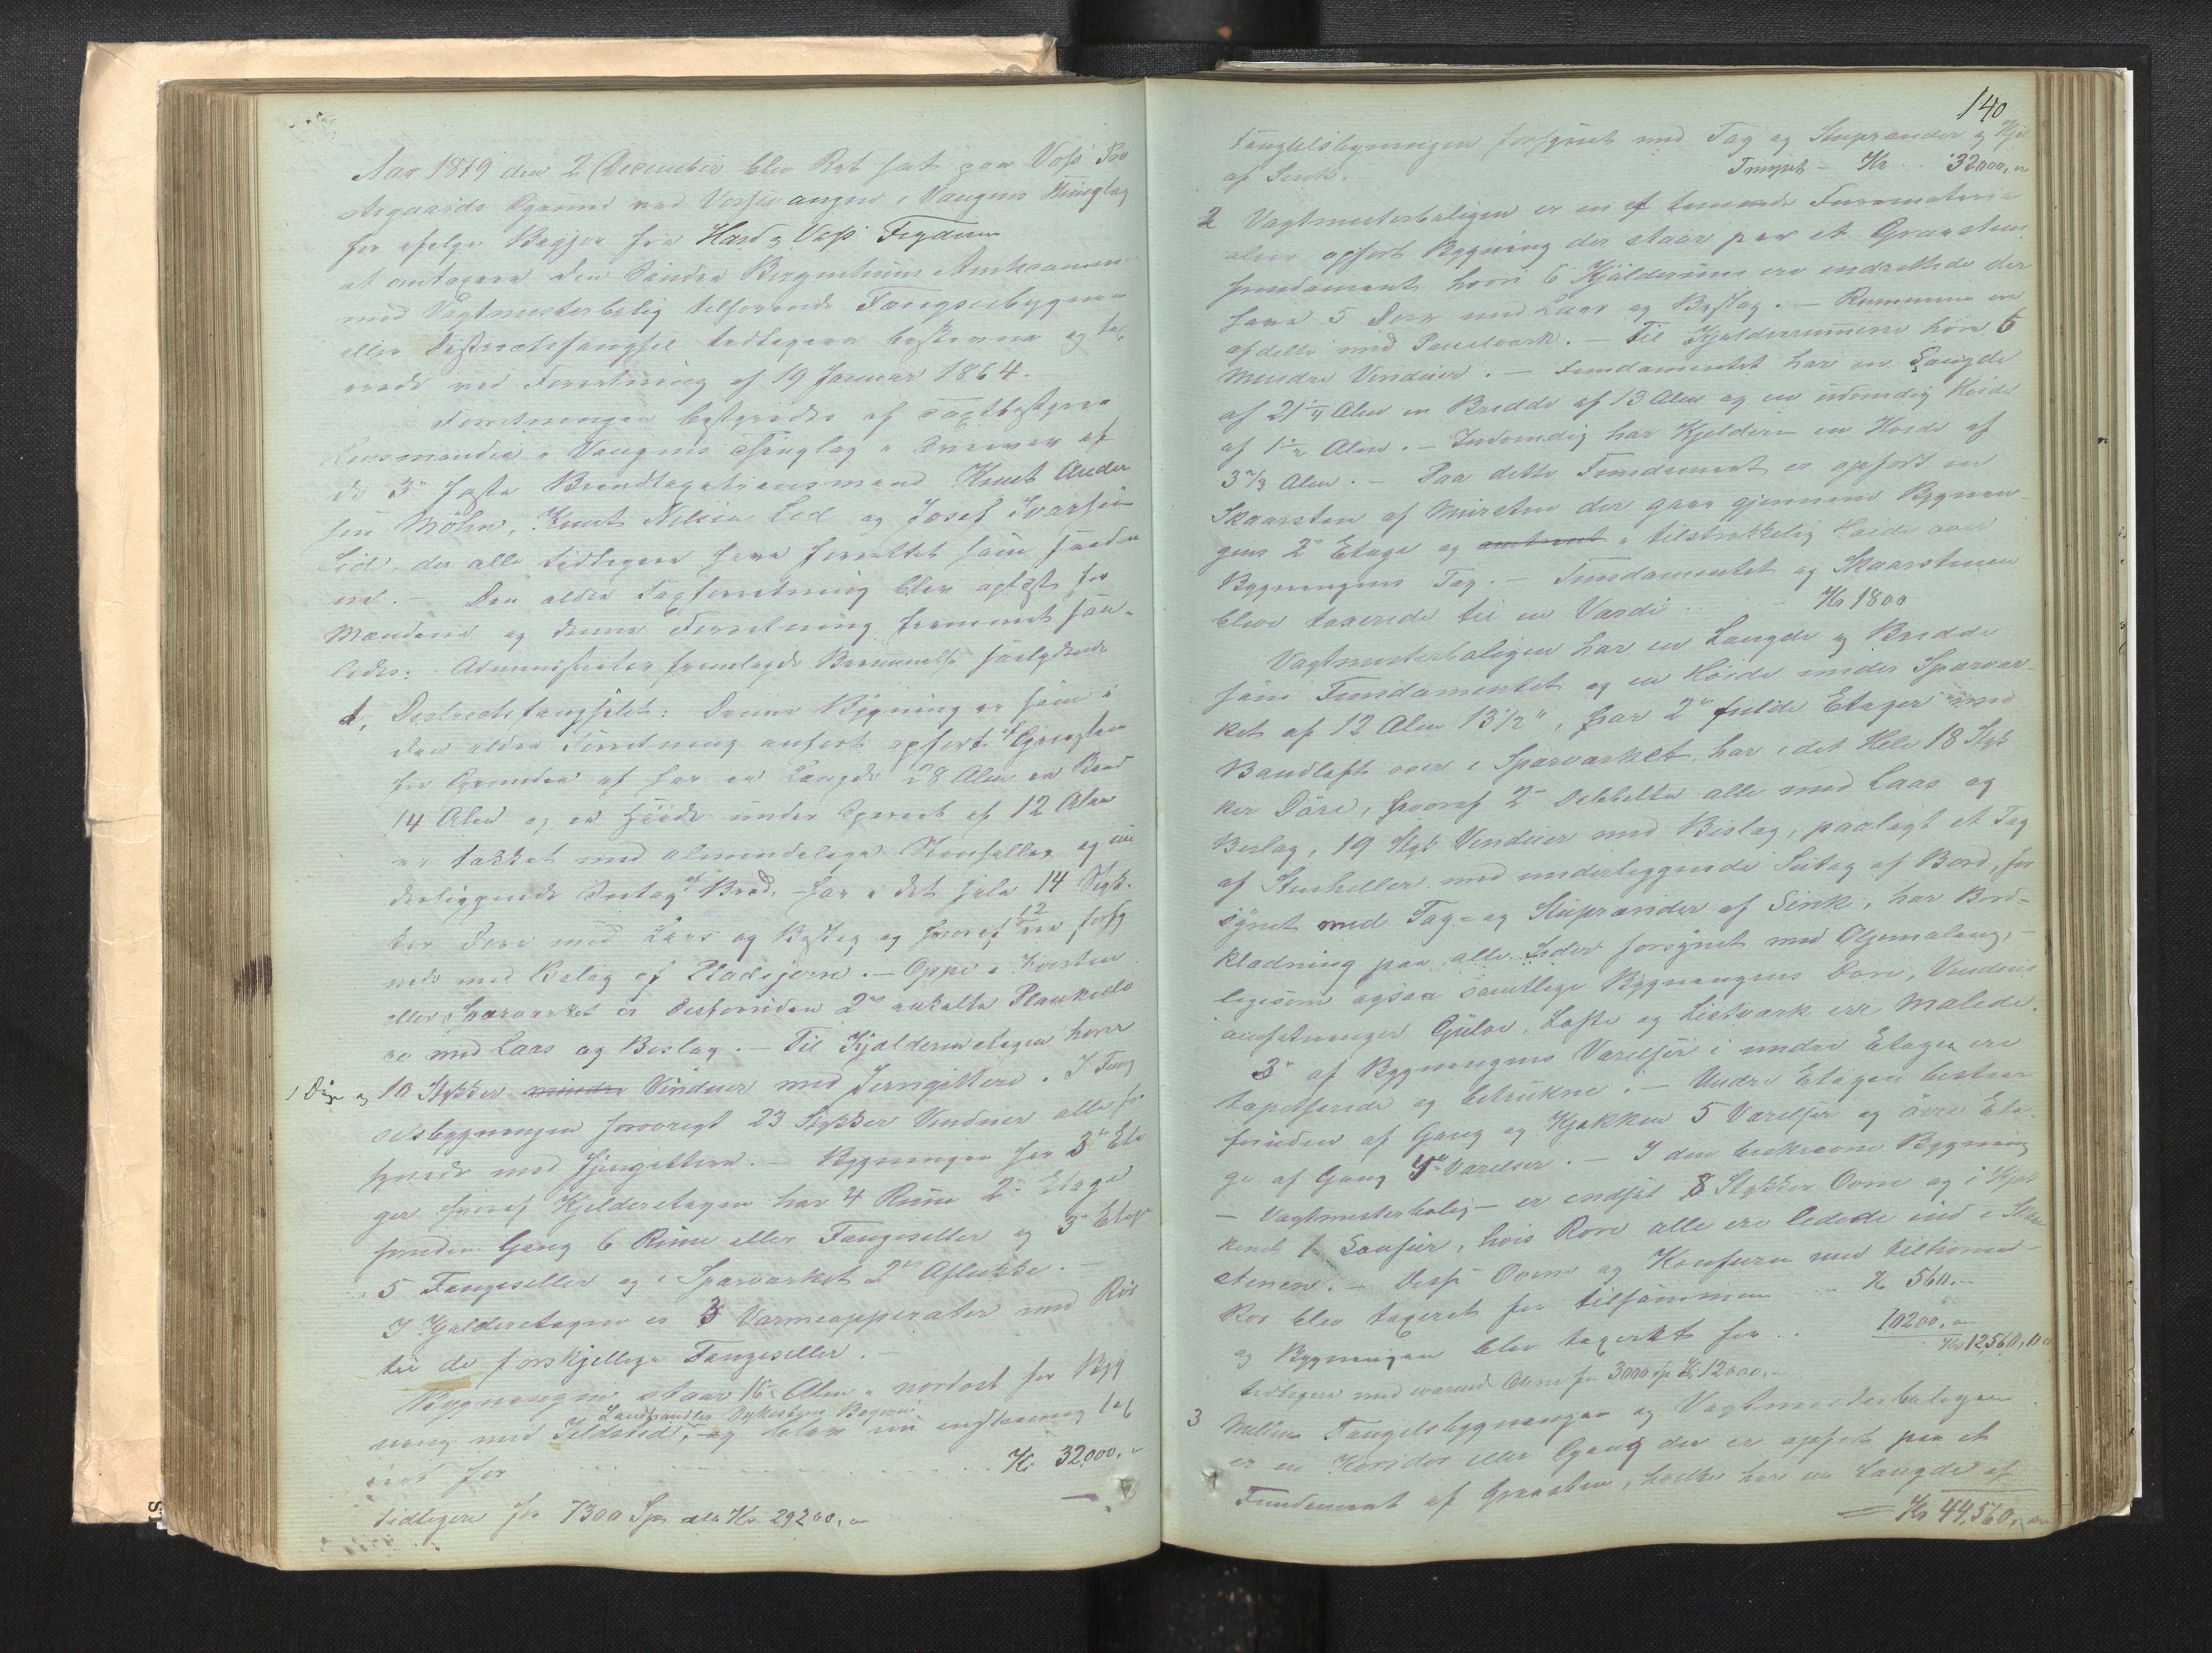 Aar 1879 den 2 December blev Ret sat paa Voss Præ
stegaards Grund ved Vossevangen i Vangens Thinglag
for ifølge Begjær fra Hard. og Voss Fogderi
at omtaxere den Søndre Bergenhus Amtscommune
med Vagtmesterbolig tilhørende Fængselsbygning
eller Districtsfængsel tidligere beskrevne og tax
erede ved Forretning af 19 Januar 1864.
Forretningen bestyredes af Taxtbestyrer
Lensmanden i Vangens Thinglag i Overvær af
de 3de faste Brandtaxationsmænd Knut Ander
sen Møhn, Knut Nilsen Lid og Josef Ivarsen
Lid, der alle tidligere have forrettet som saadan
ne. – Den ældre Taxforretning blev oplæst for
Mændene og denne Forretning fremmet saa-
ledes: Administrator fremlagde Bemyndelse saalydende
1, Districtsfængslet: Denne Bygning er som i
den ældre Forretning anført opført af Graasten
fra Grunden af har en Længde 28 Alen en Bred
14 Alen og en Høide under Sparret af 12 Alen
er tækket med almindelige Stenheller og un
derliggende Sutag af Bord. – har i det hele 14 Styk-
ker Døre med Laas og Beslag og hvoraf 12 ere forsy
nede med Beslag af Pladejern. – Oppe i Kvisten
eller Sparværket er desforuden 2de enkelte Plankedø
re med Laas og Beslag. – Til Kjælderen etagen hører
1 Dør og 10 Stykker mindre Vinduer med Jerngittere. I Fæng
selsbygningen forøvrigt 23 Stykker Vinduer alle for
synede med Jerngittere. – Bygningen har 3de Eta
ger hvoraf Kjelderetagen har 4 Rum 2den Etage
foruden Gang 6 Rum eller Fangeseller og 3de Etage
5 Fangeseller og i Sparværket 2de Aflukke. –
I Kjælderetagen er 3 Varmeapperater med Rør
til de forskjellige Fangeseller. –
Bygningen staar 16 Alen i nordost for Byg
Landhandler Dykestens Bageri
ning med Ildsted, og blev nu enstemmig tax
eret for . . . . . . Kr 32000,"
tidligere for 7300 Sp alt Kr 29200,"
140
Fængselsbygningen forsynet med Tag og Stuprænder og Hjel
af Sink. Transport – Kr . . 32000,"
2 Vagtmesterboligen er en af tømrede Furumateri
aler opført Bygning der staar paa et Graastens
fundament hvori 6 Kjælderrum ere indrettede der
have 5 Døre med Laas og Beslag. – Rummene ere
afdelte med Panelværk. – Til Kjælderrummene høre 6
Mindre Vinduer. – Fundamentet har en Længde
af 21 1/4 Alen en Bredde af 13 Alen og en udvendig Høide
af 1 1/2 Alen. – Indvendig har Kjelderen en Høide af
3 2/3 Alen. – Paa dette Fundament er opført en
Skaarsten af Mursten der gaar gjennem Bygnin-
gens 2de Etage og omtrent i tilstrækkelig Høide over
Bygningens Tag. – Fundamentet og Skaarstenen
blev taxerede til en Værdi . . Kr 1800
Vagtmesterboligen har en Længde og Bredde
som Fundamentet og en Høide under Sparvær-
ket af 12 Alen 13 1/2", har 2de fulde Etager med
Bandloft over i Sparværket, har i det Hele 18 Styk
ker Døre, hvoraf 2de dobbelte alle med Laas og
Beslag, 19 Styk Vinduer med Beslag, paalagt et Tag
af Stenheller med underliggende Sutag af Bord, for
synet med Tag- og Stuprænder af Sink, har Bord-
klædning paa alle Sider forsynet med Oljemaling,
ligesom ogsaa samtlige Bygningens Døre, Vinduer
indfatninger Gulve, Lofte og Listværk ere Malede.
3de af Bygningens Værelser i undre Etage ere
tapetserede og betrukne. – Undre Etagen bestaar
foruden af Gang og Kjøkken 5 Værelser og øvre Eta-
ge af Gang 4 Værelser. – I den beskrevne Bygning
– Vagtmesterbolig – er indsat 8 Stykker Ovne og i Kjøk
kenet 1 Komfur, hvis Røre alle ere ledede ind i Skaar
stenen. – Disse Ovne og Komfuren med tilhørende
Rør blev taxeret for tilsammen . . Kr 560.–
og Bygningen blev taxeret for . . 10200,"
Kr 12560,00
tidligere med iværende Ovne for 3000 Sp Kr 12000,"
3 Mellem Fængselsbygningen og Vagtmesterboligen
er en Koridor eller Gang der er opført paa et
Fundament af Graasten, hvilke har en Længde af
Kr 44,560,"